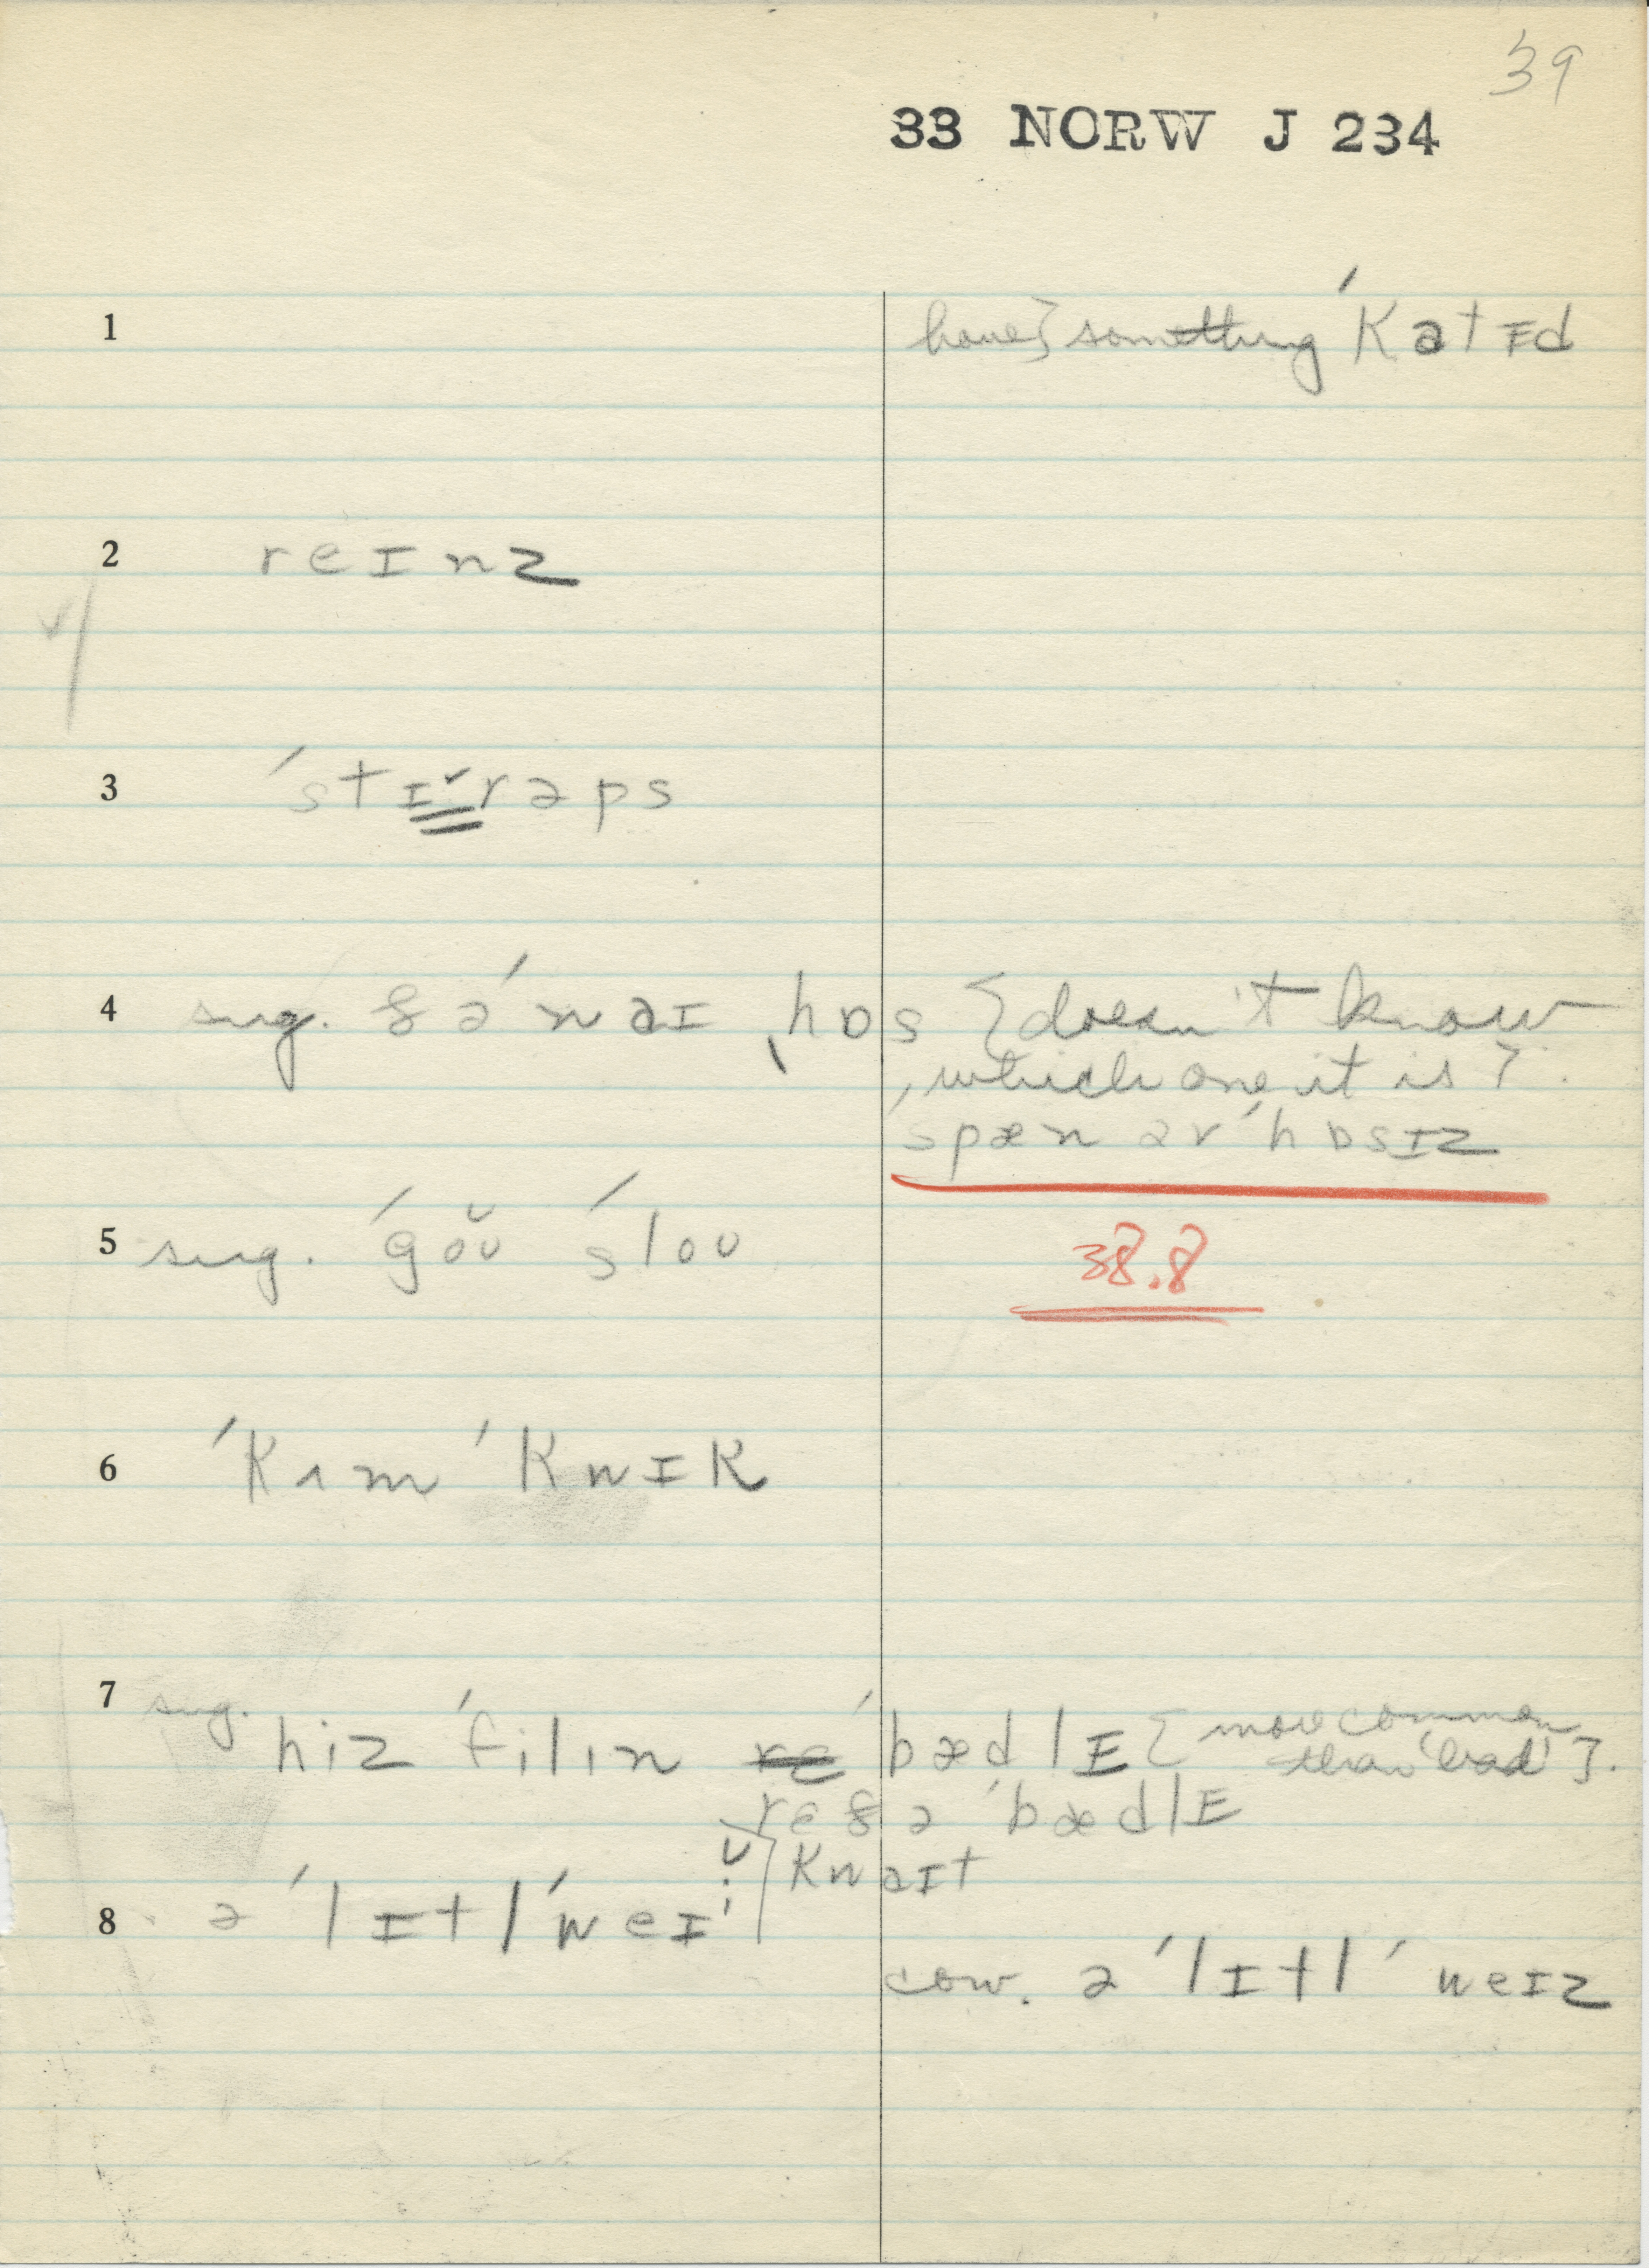 39
33 NORW J 234
1 have} something ˈkatɪd
2 reɪnz
3 ˈstɪ̆rəps
4 sug. ðəˈnaɪ ˌhɒs {doesn't know
which one it is}.
ˈspæn əv ˈhɒsɪz
5 sug. ˈgoʊ̆ ˈsloʊ
38.8
6 ˈkʌm ˈkwɪk
7 sug. hiz ˈfilɪn ˈbædlɪ {more common
than 'bad'}.
ˈbædlɪ
kwaɪt
8 ə ˈlɪtl ˈweɪ
cow. ə ˈlɪtl ˈweɪz